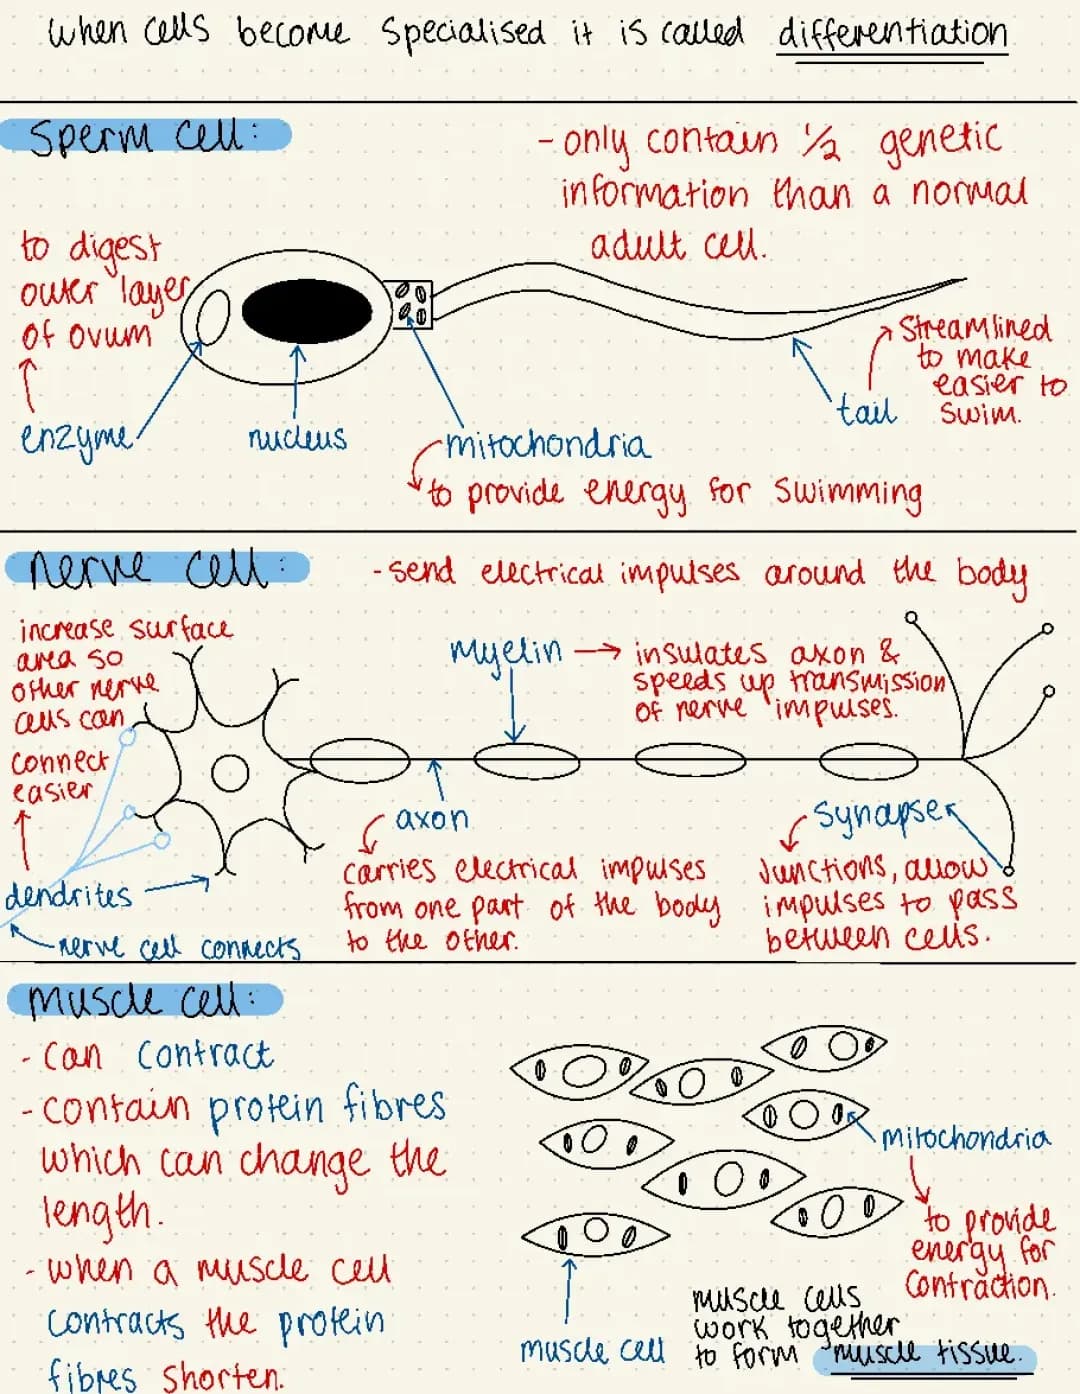 when cells become specialised it is called differentiation
Sperm cell:
- only contain 1/2 genetic
information than a normal
adult cell.
to digest
outer layer
of ovum
enzyme
nucleus
mitochondria
to provide energy for swimming
tail
Streamlined
to make
easier to
swim.
nerve cell:
- send electrical impulses around the body
increase surface
area so
other nerve
cells can
connect
easier
dendrites
nerve cell connects
myelin
insulates axon &
speeds up transmission
of nerve impulses.
axon
carries electrical impulses
from one part of the body
to the other.
Synapse
Junctions, allow
impulses to pass
between cells.
muscle cell:
- can contract
- contain protein fibres
which can change the
length.
- when a muscle cell
contracts the protein
fibres shorten.
mitochondria
to provide
energy for
contraction.
muscle cell
muscle cells
work together
to form muscle tissue.